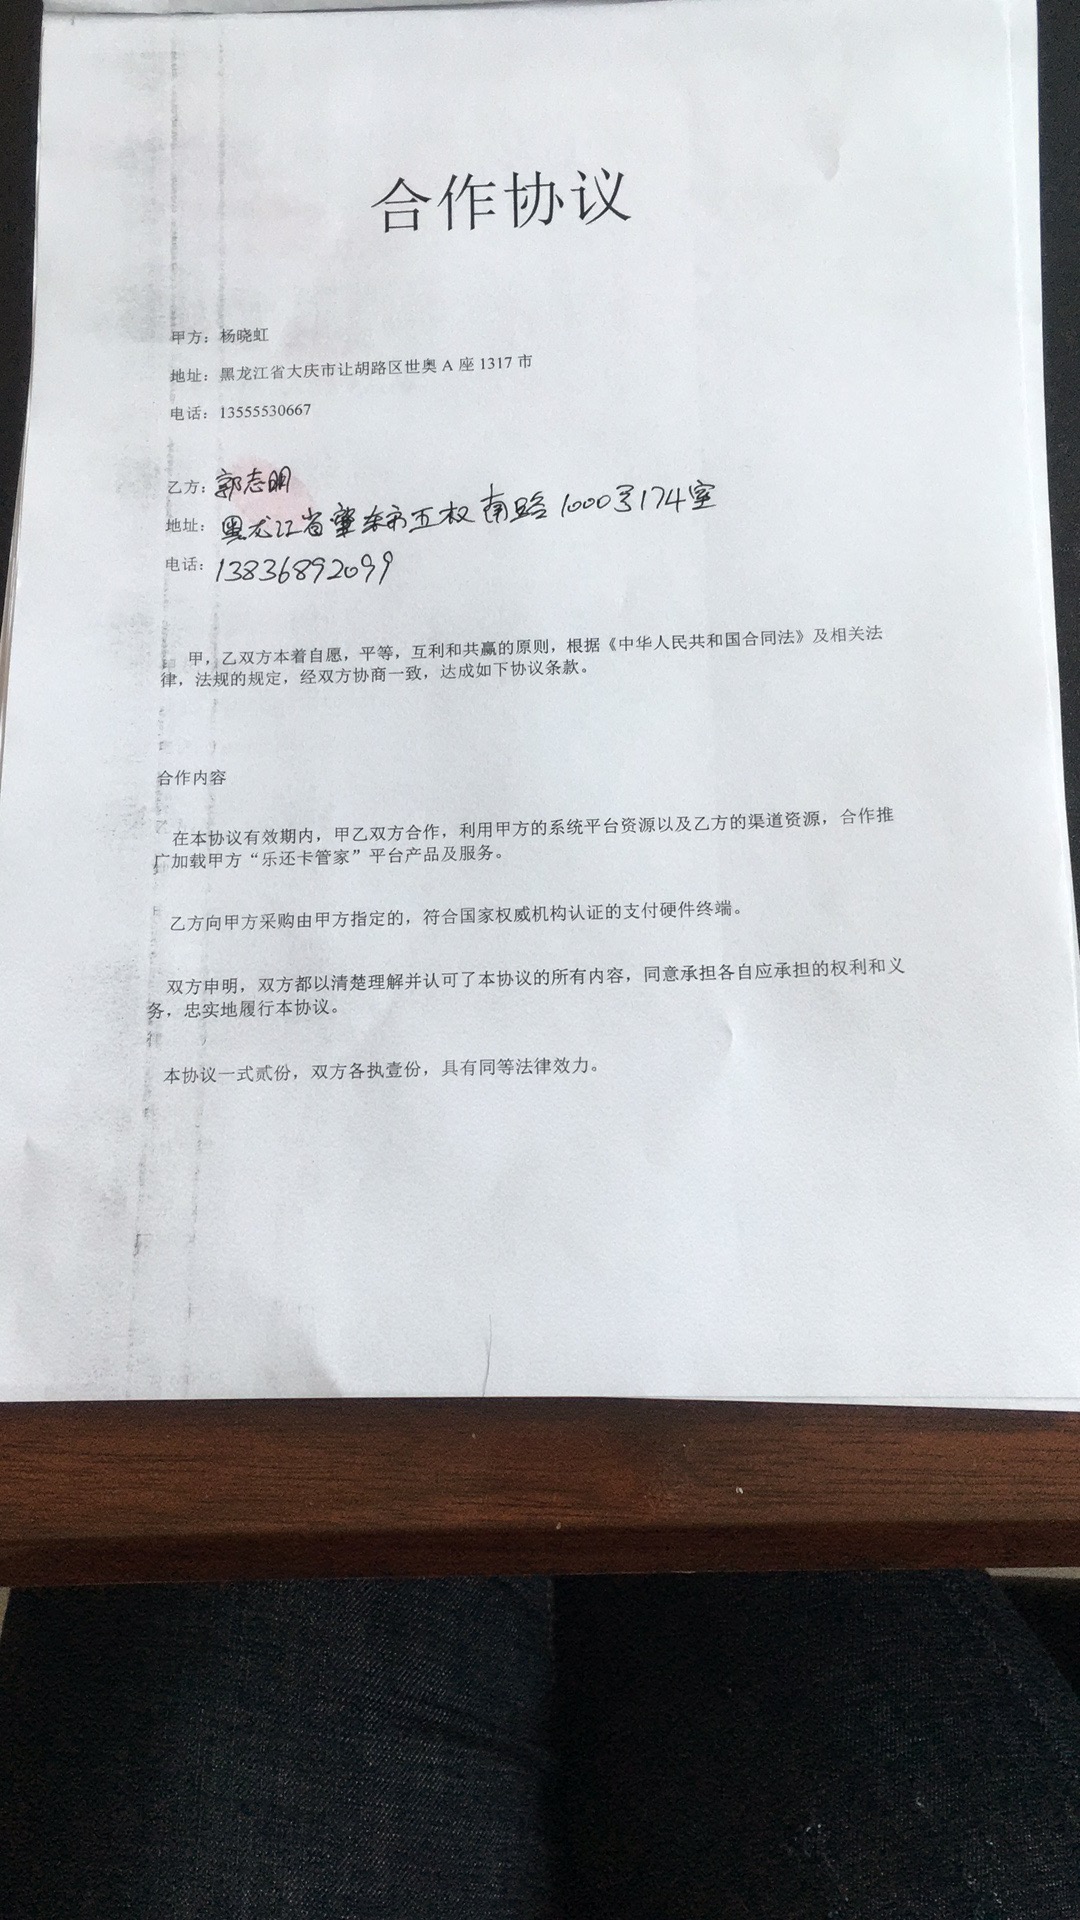 合作协议
甲方：杨晓虹
地址：黑龙江省大庆市让胡路区世奥 A 座 1317 市
电话：13555530667
乙方：郭志明
地址：黑龙江省肇东市正权南路1000号174室
电话：13836892099
甲，乙双方本着自愿，平等，互利和共赢的原则，根据《中华人民共和国合同法》及相关法
律，法规的规定，经双方协商一致，达成如下协议条款。
合作内容
在本协议有效期内，甲乙双方合作，利用甲方的系统平台资源以及乙方的渠道资源，合作推
广加载甲方“乐还卡管家”平台产品及服务。
乙方向甲方采购由甲方指定的，符合国家权威机构认证的支付硬件终端。
双方申明，双方都以清楚理解并认可了本协议的所有内容，同意承担各自应承担的权利和义
务，忠实地履行本协议。
本协议一式贰份，双方各执壹份，具有同等法律效力。